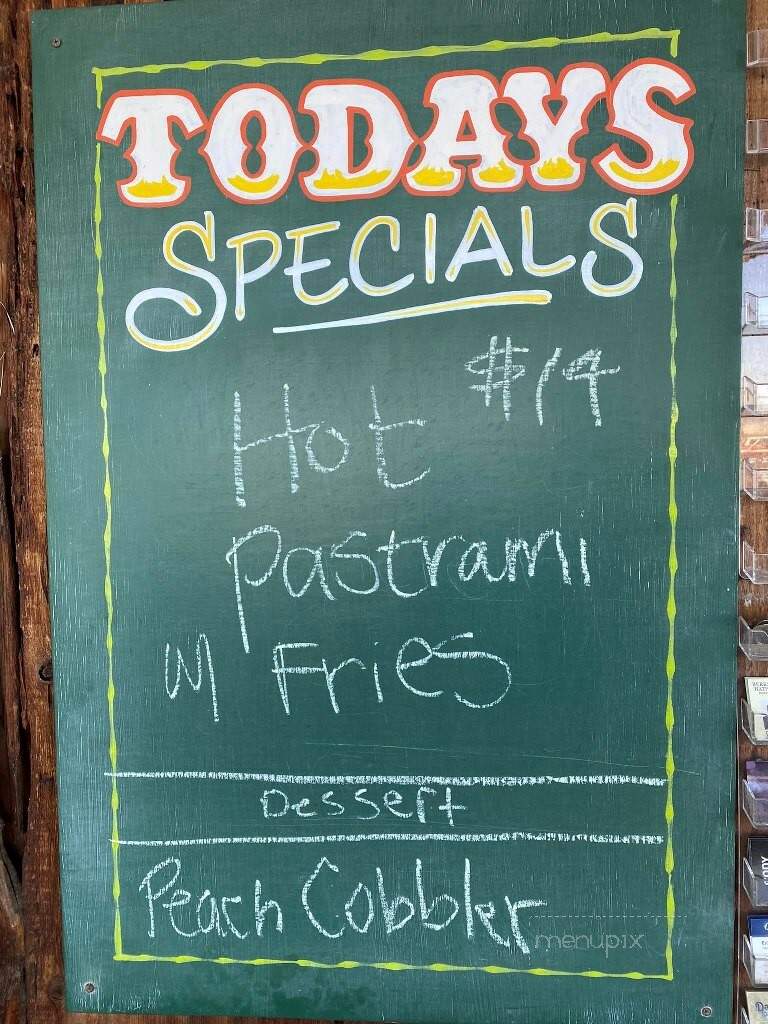 TODAYS
SPECIALS
$14
Hot
Pastrami
w/ Fries
Dessert
Peach Cobbler
menupix